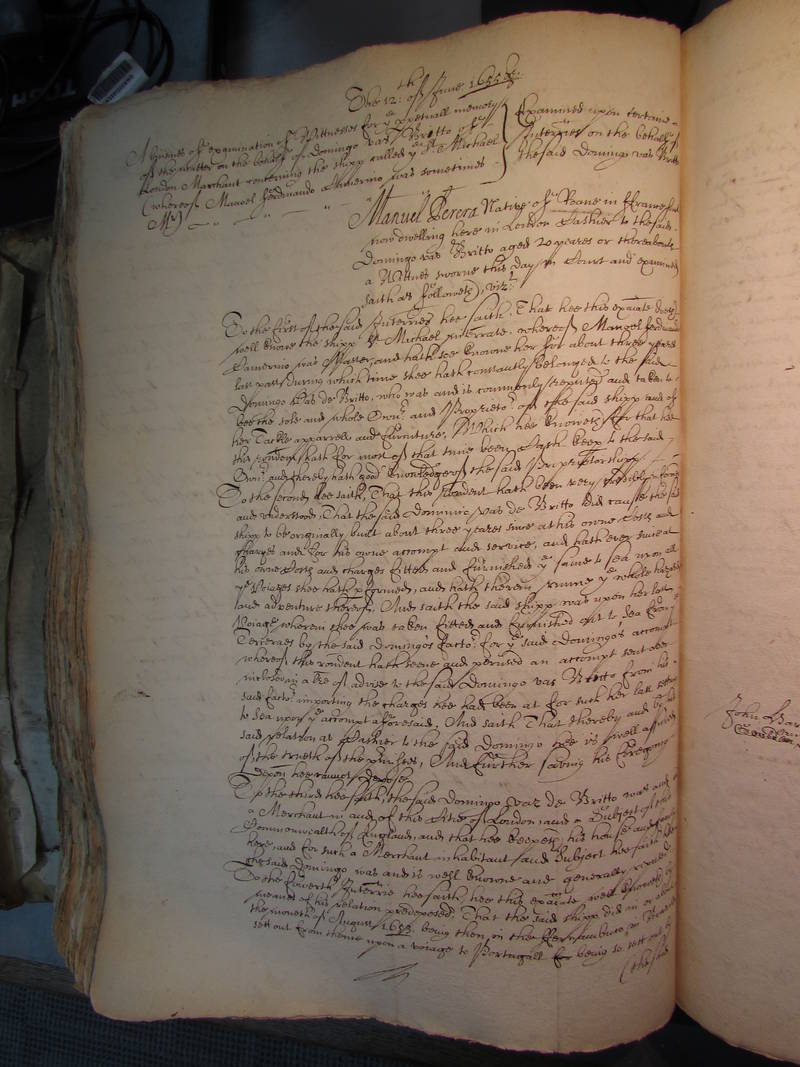 The 12:th of June 1655
A business of examination of Wittnesses for ye perpetuall memory
of the matter on the behalfe of Domingo vaz Britto of
London Marchant concerning the shipp called ye St Michael
(whereof Manoel Ferdinando Camerino was sometimes
Mr)
Examined upon certaine
Interries on the behalfe of
the said Domingo vaz Britto
Manuel Perera Native of Roane in ffrance
now dwelling here in London Cashier to the said
Domingo vaz Britto aged 20 yeares or thereabouts
a Wittnes sworne this day in Court and examined
saith as followeth, vizt
To the first of the said Interries hee saith, That hee this examinate
well knowe the shipp St Michael interrate, whereof Manoel Ferdinando
Camerino was Master, and hath soe knowne her for about three yeares
last past, during which time shee hath constantly belonged to the said
Domingo Vas de Britto, who was and is commonly reputed and taken to
bee the sole and whole Ownr and Proprietor of the said shipp and of
her Tackle apparrell and furniture, Which hee knoweth for that hee
this rendent hath for most of that time been Cash keep to the said
Ownr and thereby hath good knowledge of the said Proprietorshipp
To the second hee saith, That this rendent hath been very credibly informed
and understood, That the said Domingo vas de Britto did cause the said
shipp to be originally built about three yeares since at his owne costs and
charges and for his owne accompt and service, and hath ever since at
his owne costs and charges fitted and furnished ye same to sea upon all
ye Voiages shee hath performed, and hath therein runne ye whole hazard
and adventure thereof, And saith the said shipp was upon her last
Voiage wherein shee was taken fitted and furnished out to sea from ye
Terceraes by the said Domingo's factor for ye said Domingo's accompt
whereof this rendent hath seene and perused an accompt sent over
inclosed in a lre of advise to the said Domingo vas Britto from his
said factor importing the charges hee had been at for such her last setting
to sea upon ye accompt aforesaid, And saith That thereby and by his
said relation as Cashier to the said Domingo hee is well assured
of the trueth of the premises, And further saving his foregoing
depon hee cannot depose
To the third hee saith, the said Domingo vaz de Britto was and
a Merchant in and of this Citie of London, and a Subject of this
Commonwealth of England, and that hee keepeth his house and family
here, and for such a Merchant inhabitant and Subject hee saith
the said Domingo was and is well knowne and generally reputed
To the fowerth Interrie hee saith hee this examinate well knoweth by
meanes of his relation predeposed That the said shipp did in or about
the moneth of August 1653 being then in the Fernambuco in Brazeel
sett out from thence upon a voiage to Portugall for being so sett out
(the said
John